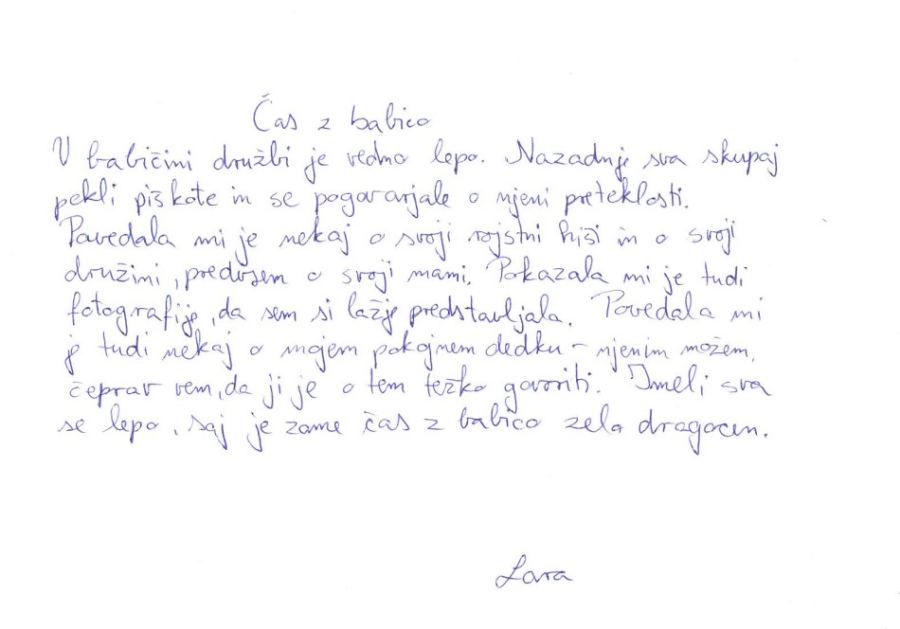 Čas z babico
V babičini družbi je vedno lepo. Nazadnje sva skupaj
pekli piškote in se pogovarjale o njeni preteklosti.
Povedala mi je nekaj o svoji rojstni hiši in o svoji
družini, predvsem o svoji mami. Pokazala mi je tudi
fotografije, da sem si lažje predstavljala. Povedala mi
je tudi nekaj o mojem pokojnem dedku - njenim možem,
čeprav vem, da ji je o tem težko govoriti. Imeli sva
se lepo, saj je zame čas z babico zelo dragocen.
Lara